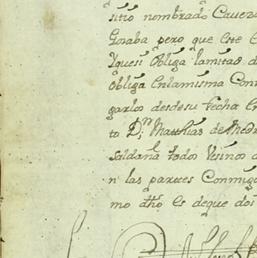 sitio nombrado Cavez
Gosaba pero que este C
Yquesi Obliga lamitad d
Obliga Enlamisma Con
garlos desdesu fecha E
to Dn Matthias de Medr
Saldaña todos Vesinos d
n las partes Conmig
mo dho Es deque doi